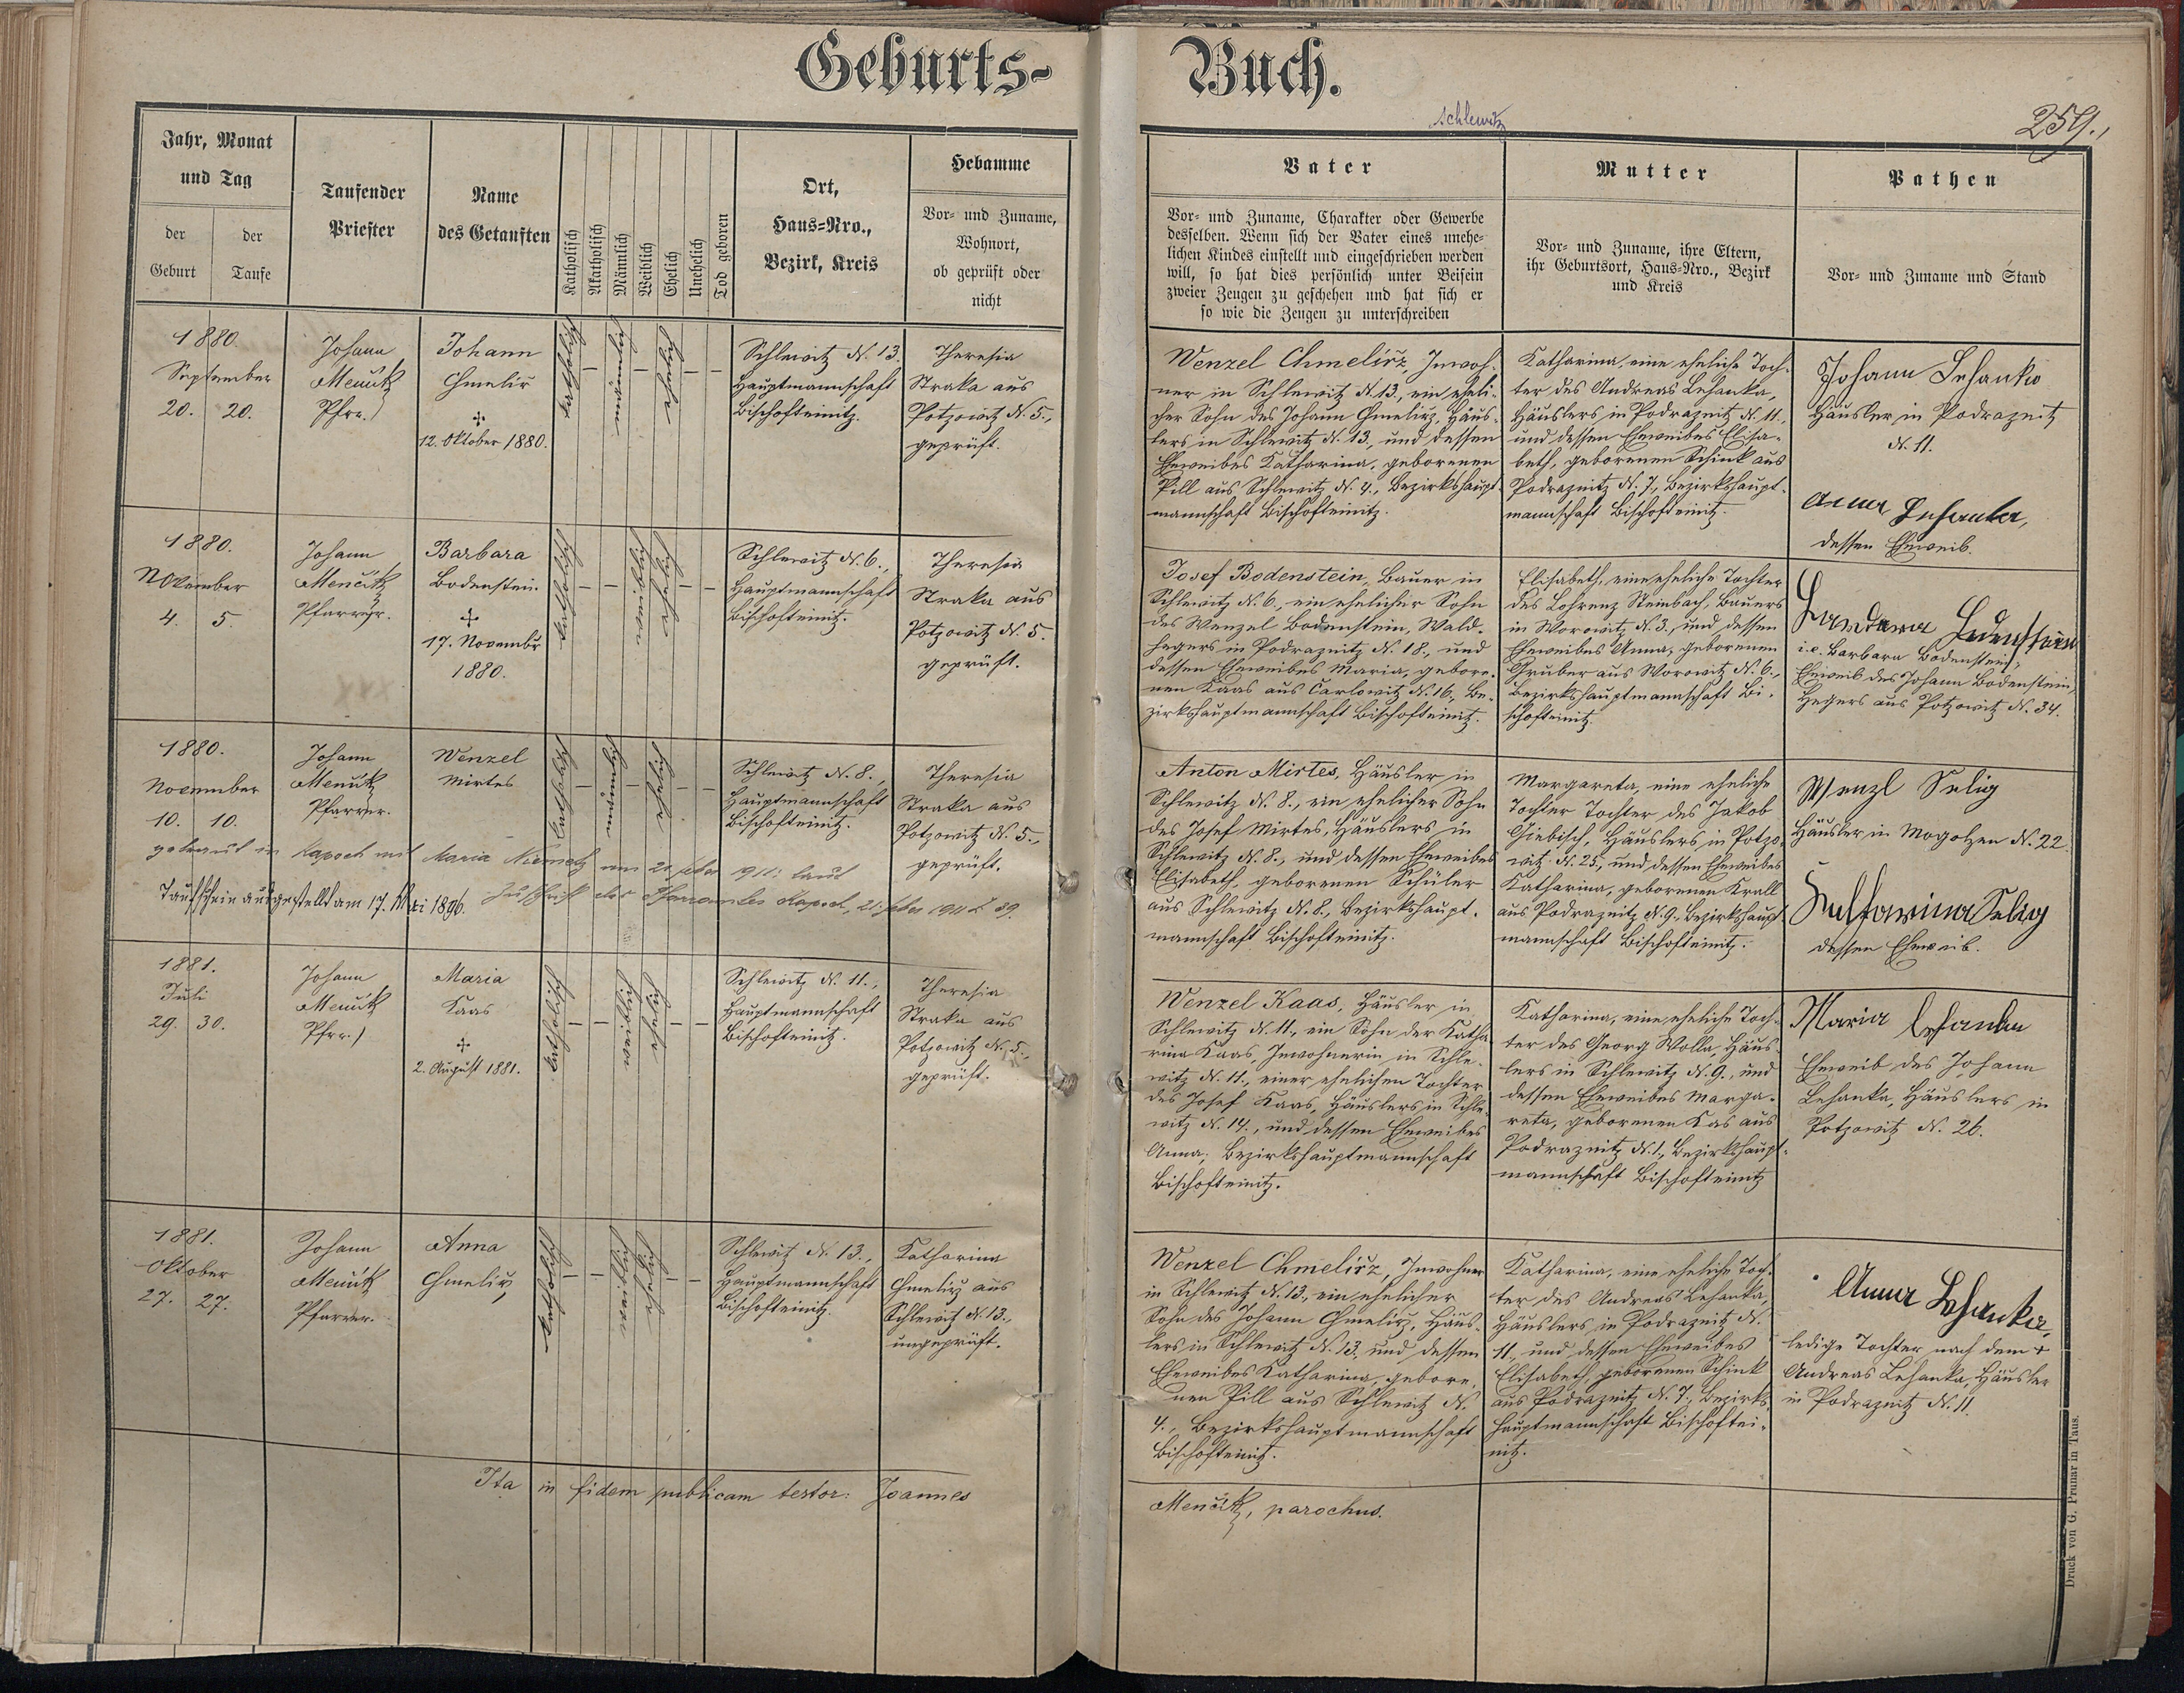 Geburts-
Buch.
schlewitz
259.,
Jahr, Monat
und Tag
der
Geburt
der
Taufe
Taufender
Priester
Name
des Getauften
Katholisch
Akatholisch
Männlich
Weiblich
Ehelich
Unehelich
Tod geboren
Ort,
Haus-Nro.,
Bezirk, Kreis
Hebamme
Vor- und Zuname,
Wohnort,
ob geprüft oder
nicht
Vater
Vor- und Zuname, Charakter oder Gewerbe
desselben. Wenn sich der Vater eines unehe-
lichen Kindes einstellt und eingeschrieben werden
will, so hat dies persönlich unter Beisein
zweier Zeugen zu geschehen und hat sich er
so wie die Zeugen zu unterschreiben
Mutter
Vor- und Zuname, ihre Eltern,
ihr Geburtsort, Haus-Nro., Bezirk
und Kreis
Pathen
Vor- und Zuname und Stand
1880.
September
20. 20.
Johann
Menčik
Pfrr.
Johann
Chmeliř
12. Oktober 1880.
katholisch
männlich
ehelich
Schlewitz N. 13.
Hauptmannschaft
Bischofteinitz.
Theresia
Straka aus
Potzowitz N. 5.,
geprüft.
Wenzel Chmelirz, Inwoh-
ner in Schlewitz N. 13., ein eheli-
cher Sohn des Johann Chmelirz, Häus-
lers in Schlewitz N. 13., und dessen
Eheweibes Katharina, geborenen
Pill aus Schlewitz N. 4., Bezirkshaupt-
mannschaft Bischofteinitz.
Katharina, eine eheliche Toch-
ter des Andreas Lehanka,
Häuslers in Podraznitz N. 11.,
und dessen Eheweibes Elisa-
beth, geborenen Schink aus
Podraznitz N. 7., Bezirkshaupt-
mannschaft Bischofteinitz.
Johann Lehanka
Häusler in Podraznitz
N. 11.
Anna Lehanka,
dessen Eheweib.
1880.
November
4. 5.
Johann
Menčik
Pfarrer.
Barbara
Bodenstein.
17. Novembr
1880.
katholisch
weiblich
ehelich
Schlewitz N. 6.,
Hauptmannschaft
Bischofteinitz.
Theresia
Straka aus
Potzowitz N. 5.
geprüft.
Josef Bodenstein, Bauer in
Schlewitz N. 6., ein ehelicher Sohn
des Wenzel Bodenstein, Wald-
hegers in Podraznitz N. 18., und
dessen Eheweibes Maria, gebore-
nen Kaas aus Carlowitz N. 16., Be-
zirkshauptmannschaft Bischofteinitz.
Elisabeth, eine eheliche Tochter
des Lohrenz Steinbach, Bauers
in Worowitz N. 3., und dessen
Eheweibes Anna, geborenen
Gruber aus Worowitz N. 6.,
Bezirkshauptmannschaft Bi-
schofteinitz.
Bodenstein
i.e. Barbara Bodenstein,
Eheweib des Johann Bodenstein,
Hegers aus Potzowitz N. 34.
1880.
November
10. 10.
Johann
Menčik
Pfarrer.
Wenzel
Mirtes
katholisch
männlich
ehelich
Schlewitz N. 8.,
Hauptmannschaft
Bischofteinitz.
Theresia
Straka aus
Potzowitz N. 5.,
geprüft.
getraut in Kaposch mit Maria Niemetz am 20. feber 1911. laut
Zuschrift des Pfarramtes Kaposch, 21. feber 1911 Z 39.
Taufschein ausgestellt am 17. Mai 1896.
Anton Mirtes, Häusler in
Schlewitz N. 8., ein ehelicher Sohn
des Josef Mirtes, Häuslers in
Schlewitz N. 8., und dessen Eheweibes
Elisabeth, geborenen Schüler
aus Schlewitz N. 8., Bezirkshaupt-
mannschaft Bischofteinitz.
Margareta, eine eheliche
Tochter Tochter des Jakob
Giebisch, Häuslers in Potzo-
witz N. 25., und dessen Eheweibes
Katharina, geborenen Krall
aus Podraznitz N. 9., Bezirkshaupt-
mannschaft Bischofteinitz.
Wenzl Selig
Häusler in Mogolzen N. 22
Katharina Selig
dessen Eheweib.
1881.
Juli
29. 30.
Johann
Menčik
Pfrr.
Maria
Kaas
2. August 1881.
katholisch
weiblich
ehelich
Schlewitz N. 11.,
Hauptmannschaft
Bischofteinitz.
Theresia
Straka aus
Potzowitz N. 5.,
geprüft.
Wenzel Kaas, Häusler in
Schlewitz N. 11., ein Sohn der Katha-
rina Kaas, Inwohnerin in Schle-
witz N. 11., einer ehelichen Tochter
des Josef Kaas, Häuslers in Schle-
witz N. 14., und dessen Eheweibes
Anna, Bezirkshauptmannschaft
Bischofteinitz.
Katharina, eine eheliche Toch-
ter des Georg Wolla, Häus-
lers in Schlewitz N. 9., und
dessen Eheweibes Marga-
reta, geborenen Kas aus
Podraznitz N. 1., Bezirkshaupt-
mannschaft Bischofteinitz
Maria Lehanka
Eheweib des Johann
Lehanka, Häuslers in
Potzowitz N. 26.
1881.
Oktober
27. 27.
Johann
Menčik
Pfarrer.
Anna
Chmelirz
katholisch
weiblich
ehelich
Schlewitz N. 13.,
Hauptmannschaft
Bischofteinitz.
Katharina
Chmelirz aus
Schlewitz N. 13.,
ungeprüft.
Wenzel Chmelirz, Inwohner
in Schlewitz N. 13., ein ehelicher
Sohn des Johann Chmelirz, Häus-
lers in Schlewitz N. 13., und dessen
Eheweibes Katharina, gebore-
nen Pill aus Schlewitz N.
4., Bezirkshauptmannschaft
Bischofteinitz.
Katharina, eine eheliche Toch-
ter des Andreas Lehanka,
Häuslers in Podraznitz N.
11., und dessen Eheweibes
Elisabeth, geborenen Schink
aus Podraznitz N. 7., Bezirks-
hauptmannschaft Bischoftei-
nitz.
Anna Lehanka,
ledige Tochter nach dem +
Andreas Lehanka, Häusler
in Podraznitz N. 11.
Ita in fidem publicam testor: Joannes
Menčik, parochus.
Druck von G. Prunar in Taus.